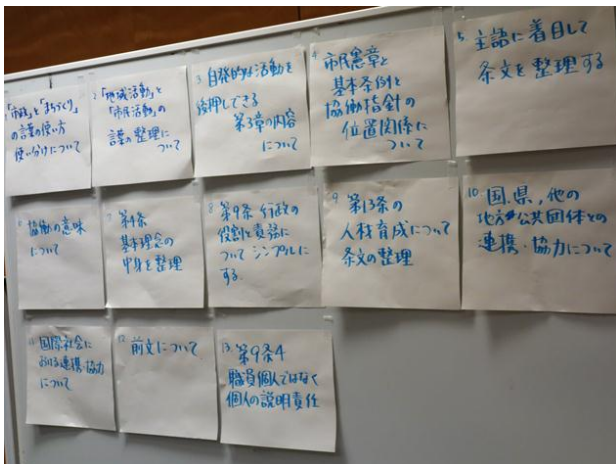 1.「市政」と「まちづくり」
の言葉の使い方
使い分けについて
2.「地域活動」と
「市民活動」の
言葉の整理に
ついて
3.自発的な活動を
後押しできる
第3章の内容
について
4.市民憲章と
基本条例と
協働指針の
位置関係に
ついて
5.主語に着目して
条文を整理する
6.協働の意味
について
7.第4条
基本理念の
中身を整理
8.第9条 行政の
役割と責務に
ついて シンプルに
する。
9.第13条の
人材育成について
条文の整理
10.国、県、他の
地方公共団体との
連携・協力について
11.国際社会に
おける連携・協力
について
12.前文について
13.第9条4
職員個人ではなく
個人の説明責任